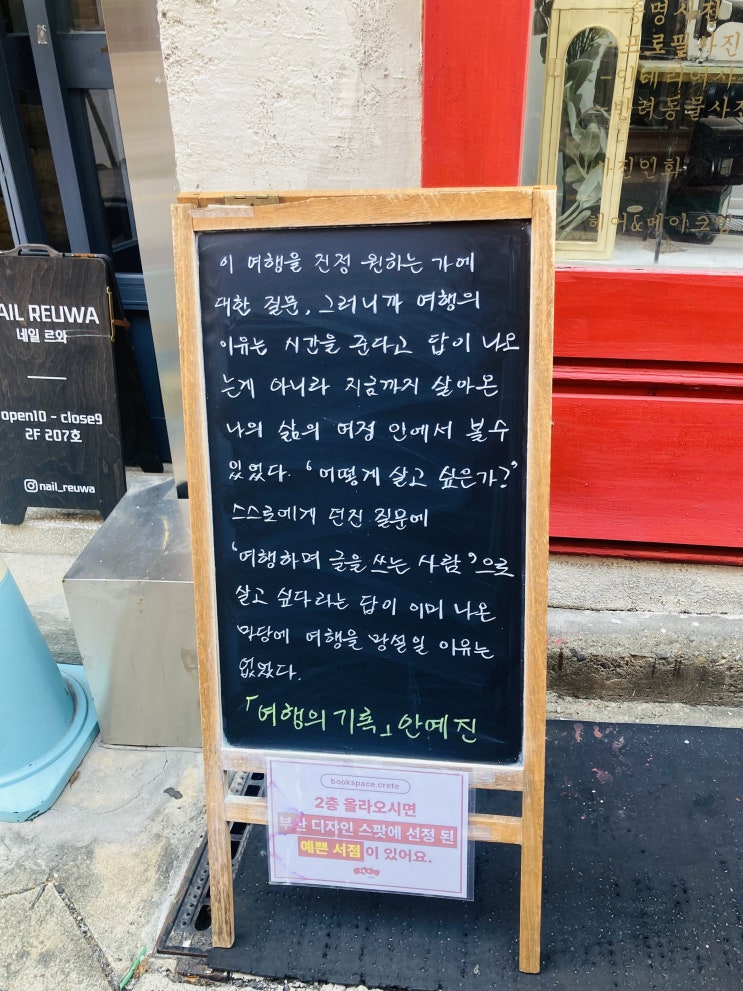 증명사진
-프로필사진
-인테리어사
-반려동물사진
사진인화
헤어&메이크업
이 여행을 진정 원하는 가에
대한 질문, 그러니까 여행의
이유는 시간을 준다고 답이 나오
는게 아니라 지금까지 살아온
나의 삶의 여정 안에서 볼수
있었다. '어떻게 살고 싶은가?'
스스로에게 던진 질문에
'여행하며 글을 쓰는 사람'으로
살고 싶다라는 답이 이미 나온
마당에 여행을 망설일 이유는
없었다.
「여행의 기록」 안예진
bookspace.crete
2층 올라오시면
부산 디자인 스팟에 선정 된
예쁜 서점이 있어요.
AIL REUWA
네일 르와
open10 - close9
2F 207호
nail_reuwa